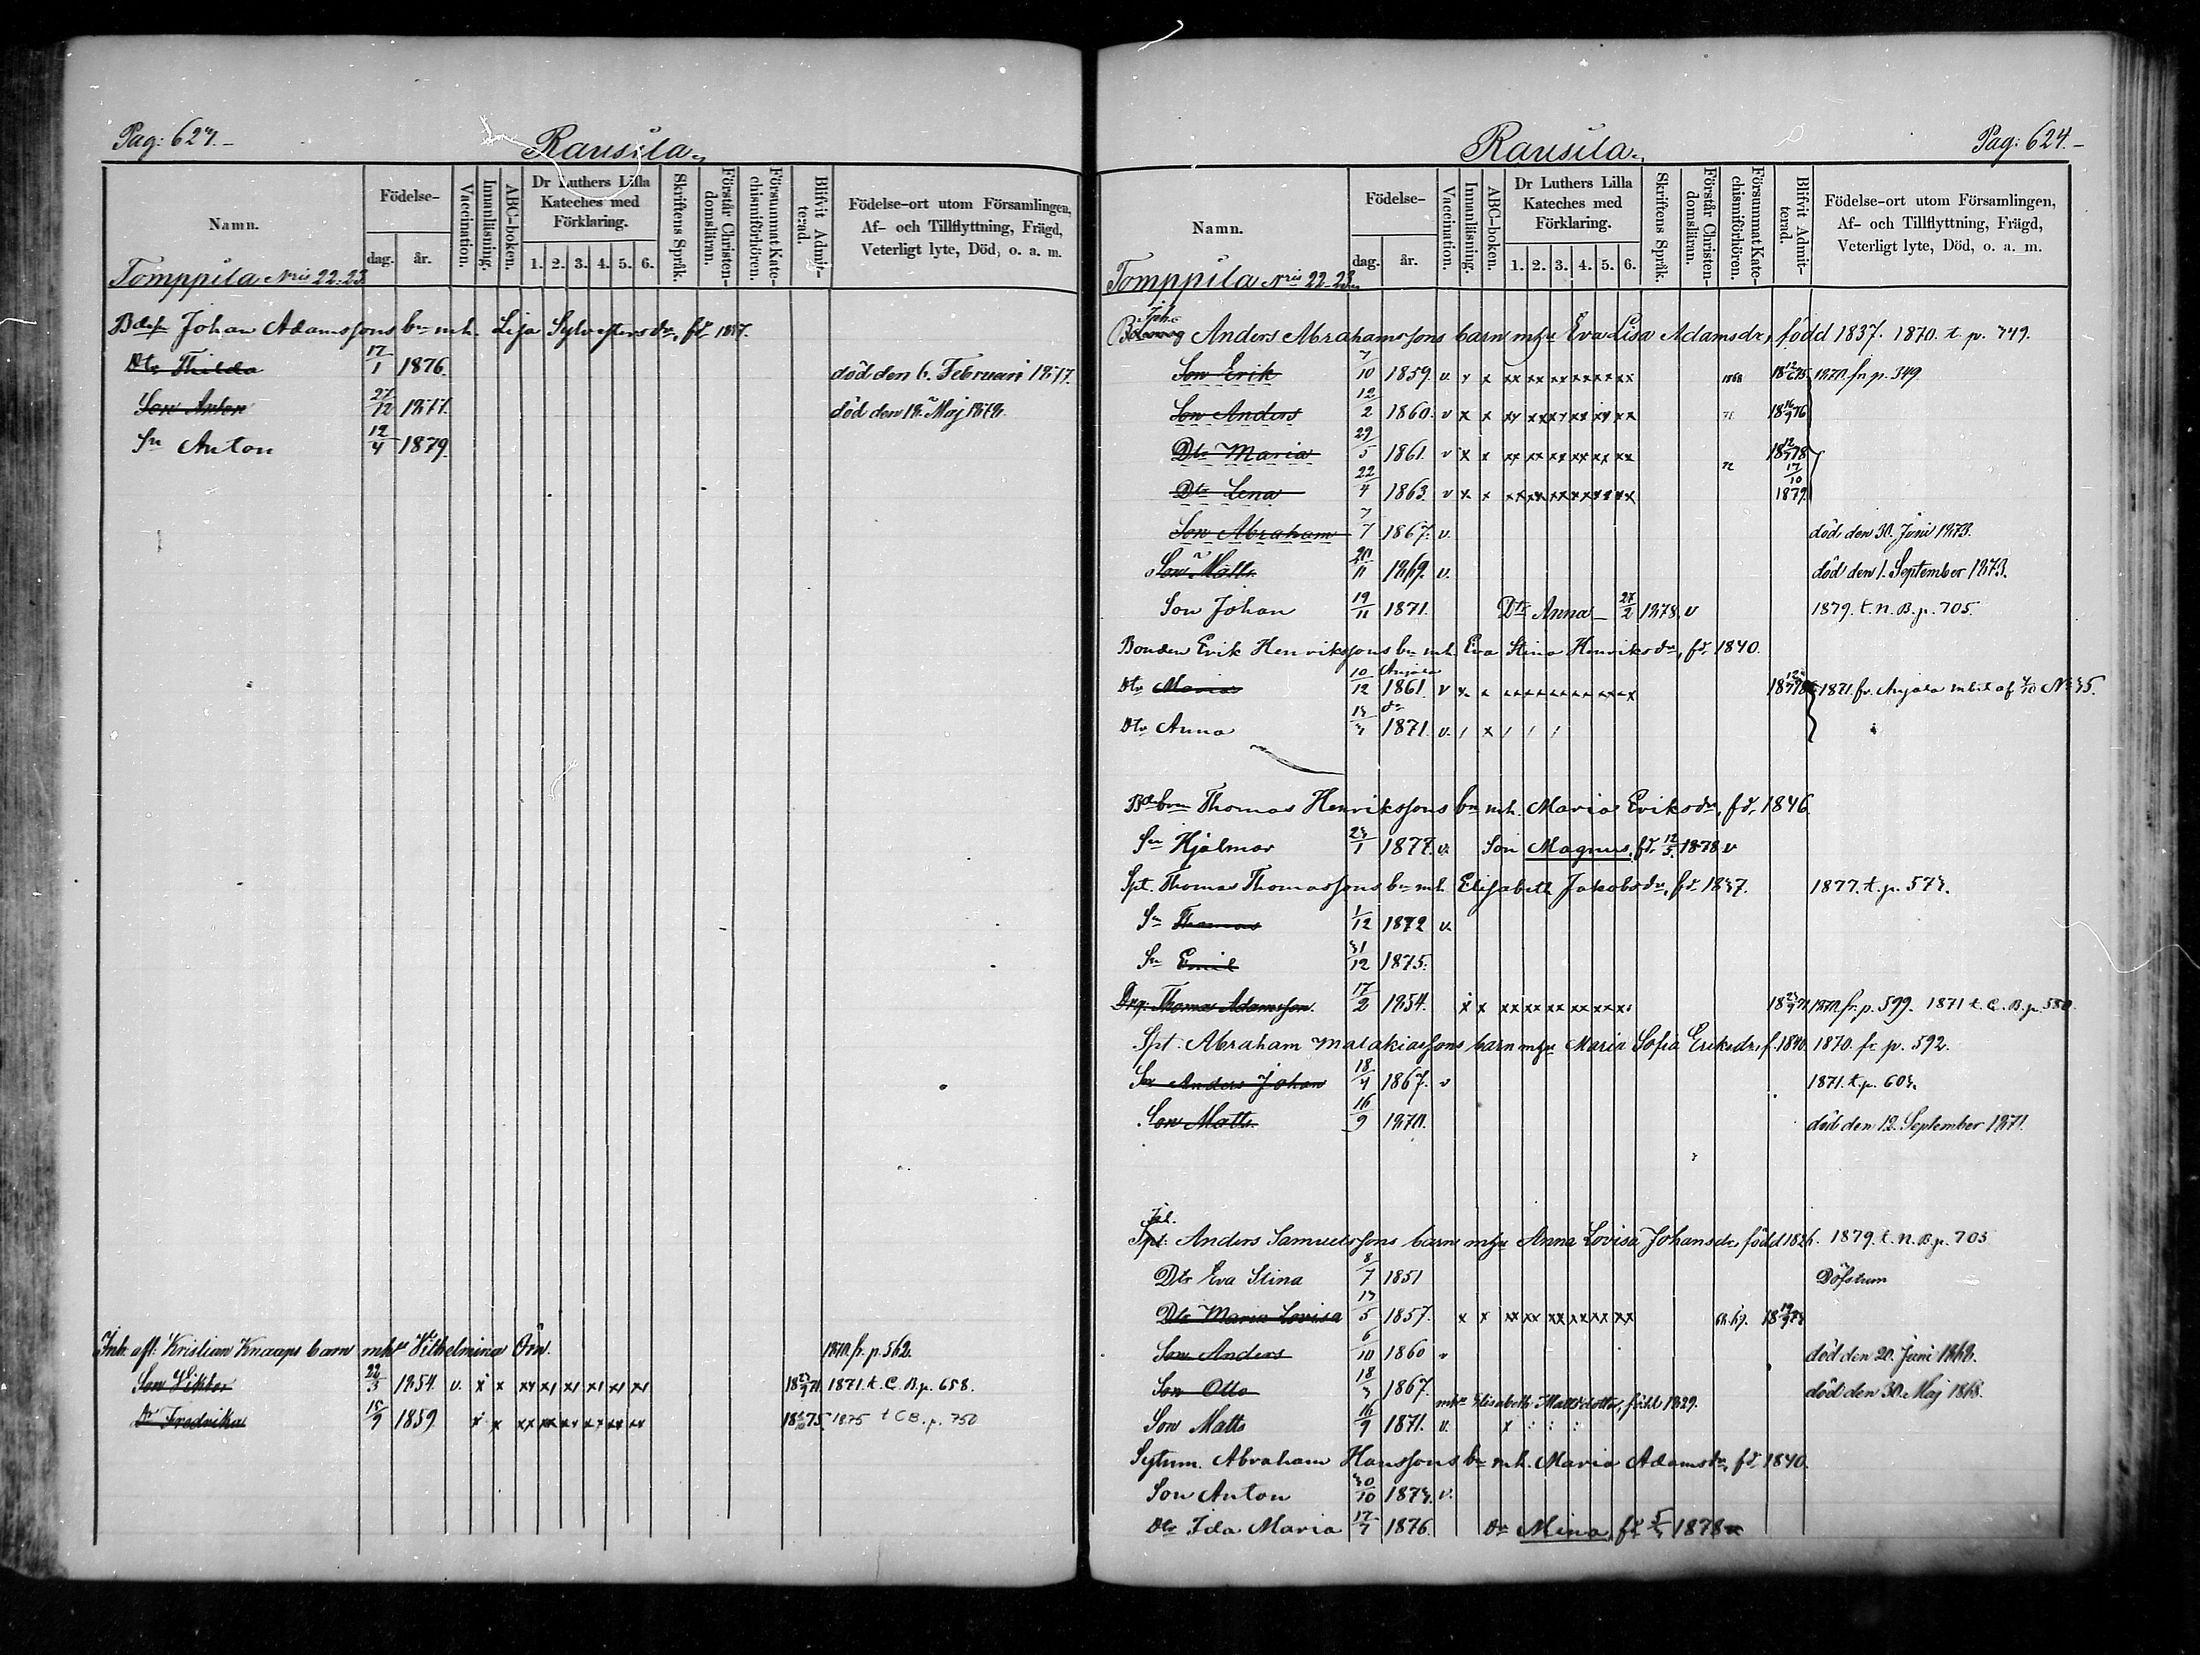 Pag: 623.
Rausila.
Namn.
Födelse-
dag. år.
Vaccination.
Innanläsning.
ABC-boken.
Dr Luthers Lilla Kateches med Förklaring.
1. 2. 3. 4. 5. 6.
Skriftens Språk.
Förstår Christendomsläran.
Försummat Katechismiförhören.
Blifvit Admitterad.
Födelse-ort utom Församlingen, Af- och Tillflyttning, Frägd, Veterligt lyte, Död, o. a. m.
Tomppila Nris 22-23.
Johan Adamssons bn mh. Lisa Sylvestersdr, fd.
Dtr Thilda 17/1 1876. död den 6. Februari 1877.
Son Anton 27/12 1877. död den Maj 1878.
Sn Anton 12/4 1879.
Inh. afl. Kristian Knaaps barn mhu Vilhelmina Örn. 1870. fr. p. 562.
Son Viktor 22/3 1854. v. x x 1871. t. C. B. p. 658.
Dr Fredrika 15/9 1859. x x 1875 t CB. p. 750
Pag: 624.
Rausila.
Namn.
Födelse-
dag. år.
Vaccination.
Innanläsning.
ABC-boken.
Dr Luthers Lilla Kateches med Förklaring.
1. 2. 3. 4. 5. 6.
Skriftens Språk.
Förstår Christendomsläran.
Försummat Katechismiförhören.
Blifvit Admitterad.
Födelse-ort utom Församlingen, Af- och Tillflyttning, Frägd, Veterligt lyte, Död, o. a. m.
Tomppila Nris 22-23.
Anders Abrahamssons barn mhu Eva Lisa Adamsdr, född 1837. 1870. t. p. 749.
Son Erik 7/10 1859. v. x x xx xx xx xx xx xx 1870. fr. p. 349.
Son Anders 12/2 1860. v x x xx xx xx xx xx xx
Dtr Maria 29/5 1861. v x x xx xx xx xx xx xx
Dtr Lena 22/4 1863. v x x xx xx xx xx xx xx 17/10 1879.
Son Abraham 7/7 1867. v. död den 30. Juni 1873.
Son Matts 20/11 1869. v. död den 1. September 1873.
Son Johan 19/11 1871. Dtr Anna 27/2 1878. v 1879. t. N. B. p. 705.
Bonden Erik Henrikssons bn mh. Eva Stina Henriksdr, fd. 1840.
Dtr Maria 10/12 Anjala 1861. v 1871. fr. Anjala
Dtr Anna 1871. v.
Thomas Henrikssons bn mh. Maria Eriksdr, fd. 1846.
Sn Hjalmar 23/1 1877. v. Son Magnus, fd. 1878 v
Spt. Thomas Thomassons bn mh. Elisabeth Jakobsdr, fd. 1877. t. p. 573.
Sn Thomas 1/12 1872 v.
Sn Emil 31/12 1875.
Drg. Thomas Adamsson. 17/2 1854. x x xx xx xx xx xx 1870. fr. p. 599. 1871 t. C. B. p. 580.
Spt. Abraham Malakiassons barn mhu Maria Sofia Eriksdr, f. 1840. 1870. fr. p. 592.
Son Anders Johan 18/4 1867. v 1871. t. p. 603.
Son Matts 16/9 1870. död den 12. September 1871.
Anders Samuelssons barn mhu Anna Lovisa Johansdr, född 1826. 1879. t. N. B. p. 705
Dtr Eva Stina 8/7 1851 Döfstum
Dtr Maria Lovisa 13/5 1857. x x xx xx xx xx xx xx
Son Anders 6/10 1860 v död den 20. Juni 1868.
Son Otto 18/3 1867. död den 30. Maj 1868.
mhu Elisabeth Mattsdotter, född 1829.
Son Matts 16/9 1871. v.
Sytnm. Abraham Hanssons bn mh. Maria Adamsdr, fd. 1840.
Son Anton 30/10 1873. v.
Dtr Ida Maria 17/7 1876. Dr Mina, fd. 1878